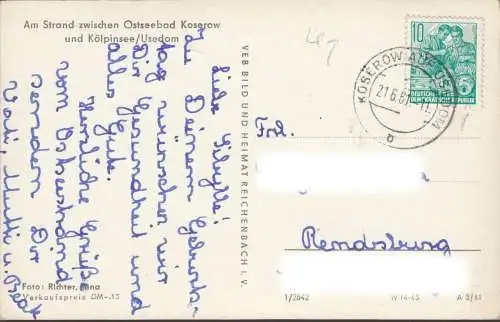 Am Strand zwischen Ostseebad Koserow
und Kölpinsee/Usedom
Liebe Sibylle!
Zu Deinem Geburts-
tag wünschen wir
Dir Gesundheit und
alles Gute.
Herzliche Grüße
vom Ostseestrand
senden Dir
Vati, Mutti u.
Foto: Richter,
Verkaufspreis DM -.15
VEB BILD UND HEIMAT REICHENBACH I. V.
1/2642
10
DEUTSCHE
DEMOKRATISCHE REPUBLIK
KOSEROW AUF USEDOM
21.6.61
b
Frl.
Rendsburg
A 3/61